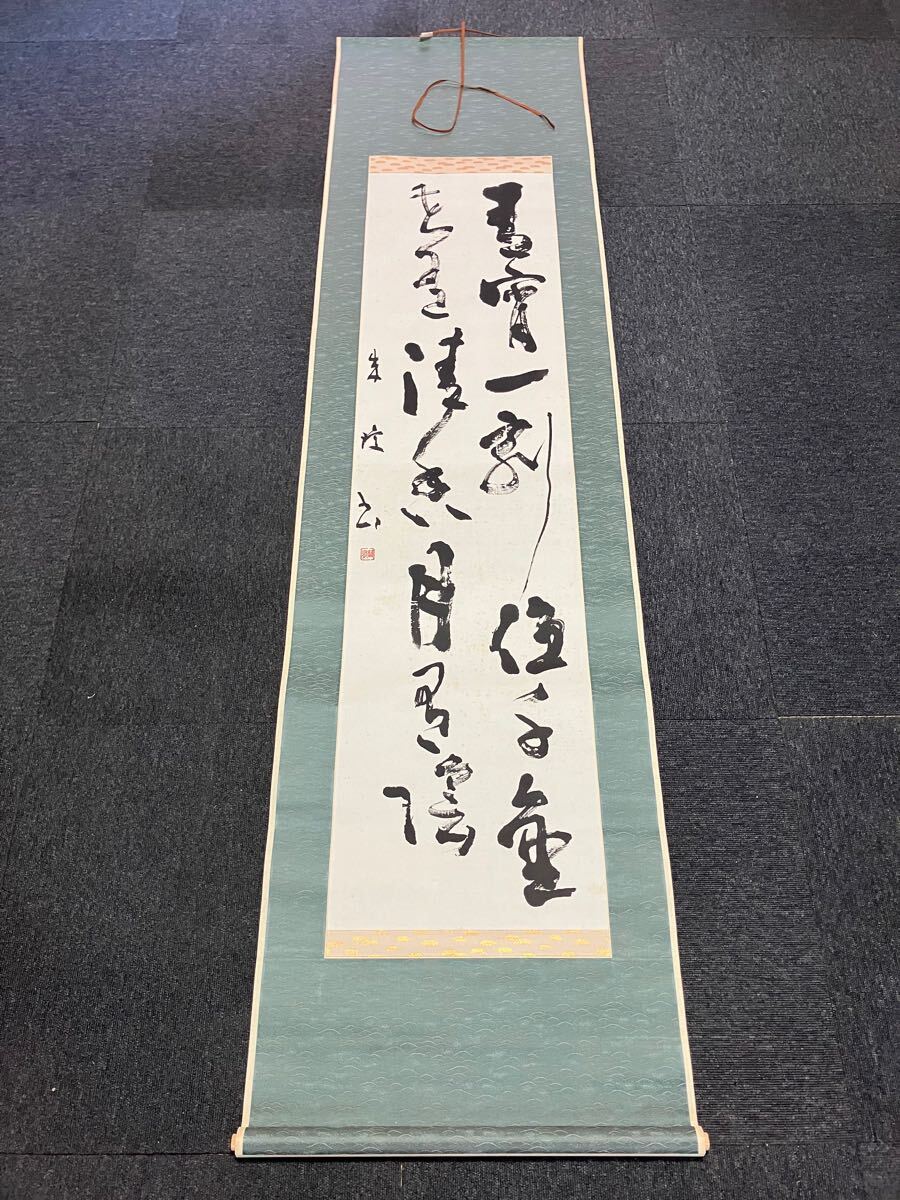 春宵一刻値千金
花有清香月有陰